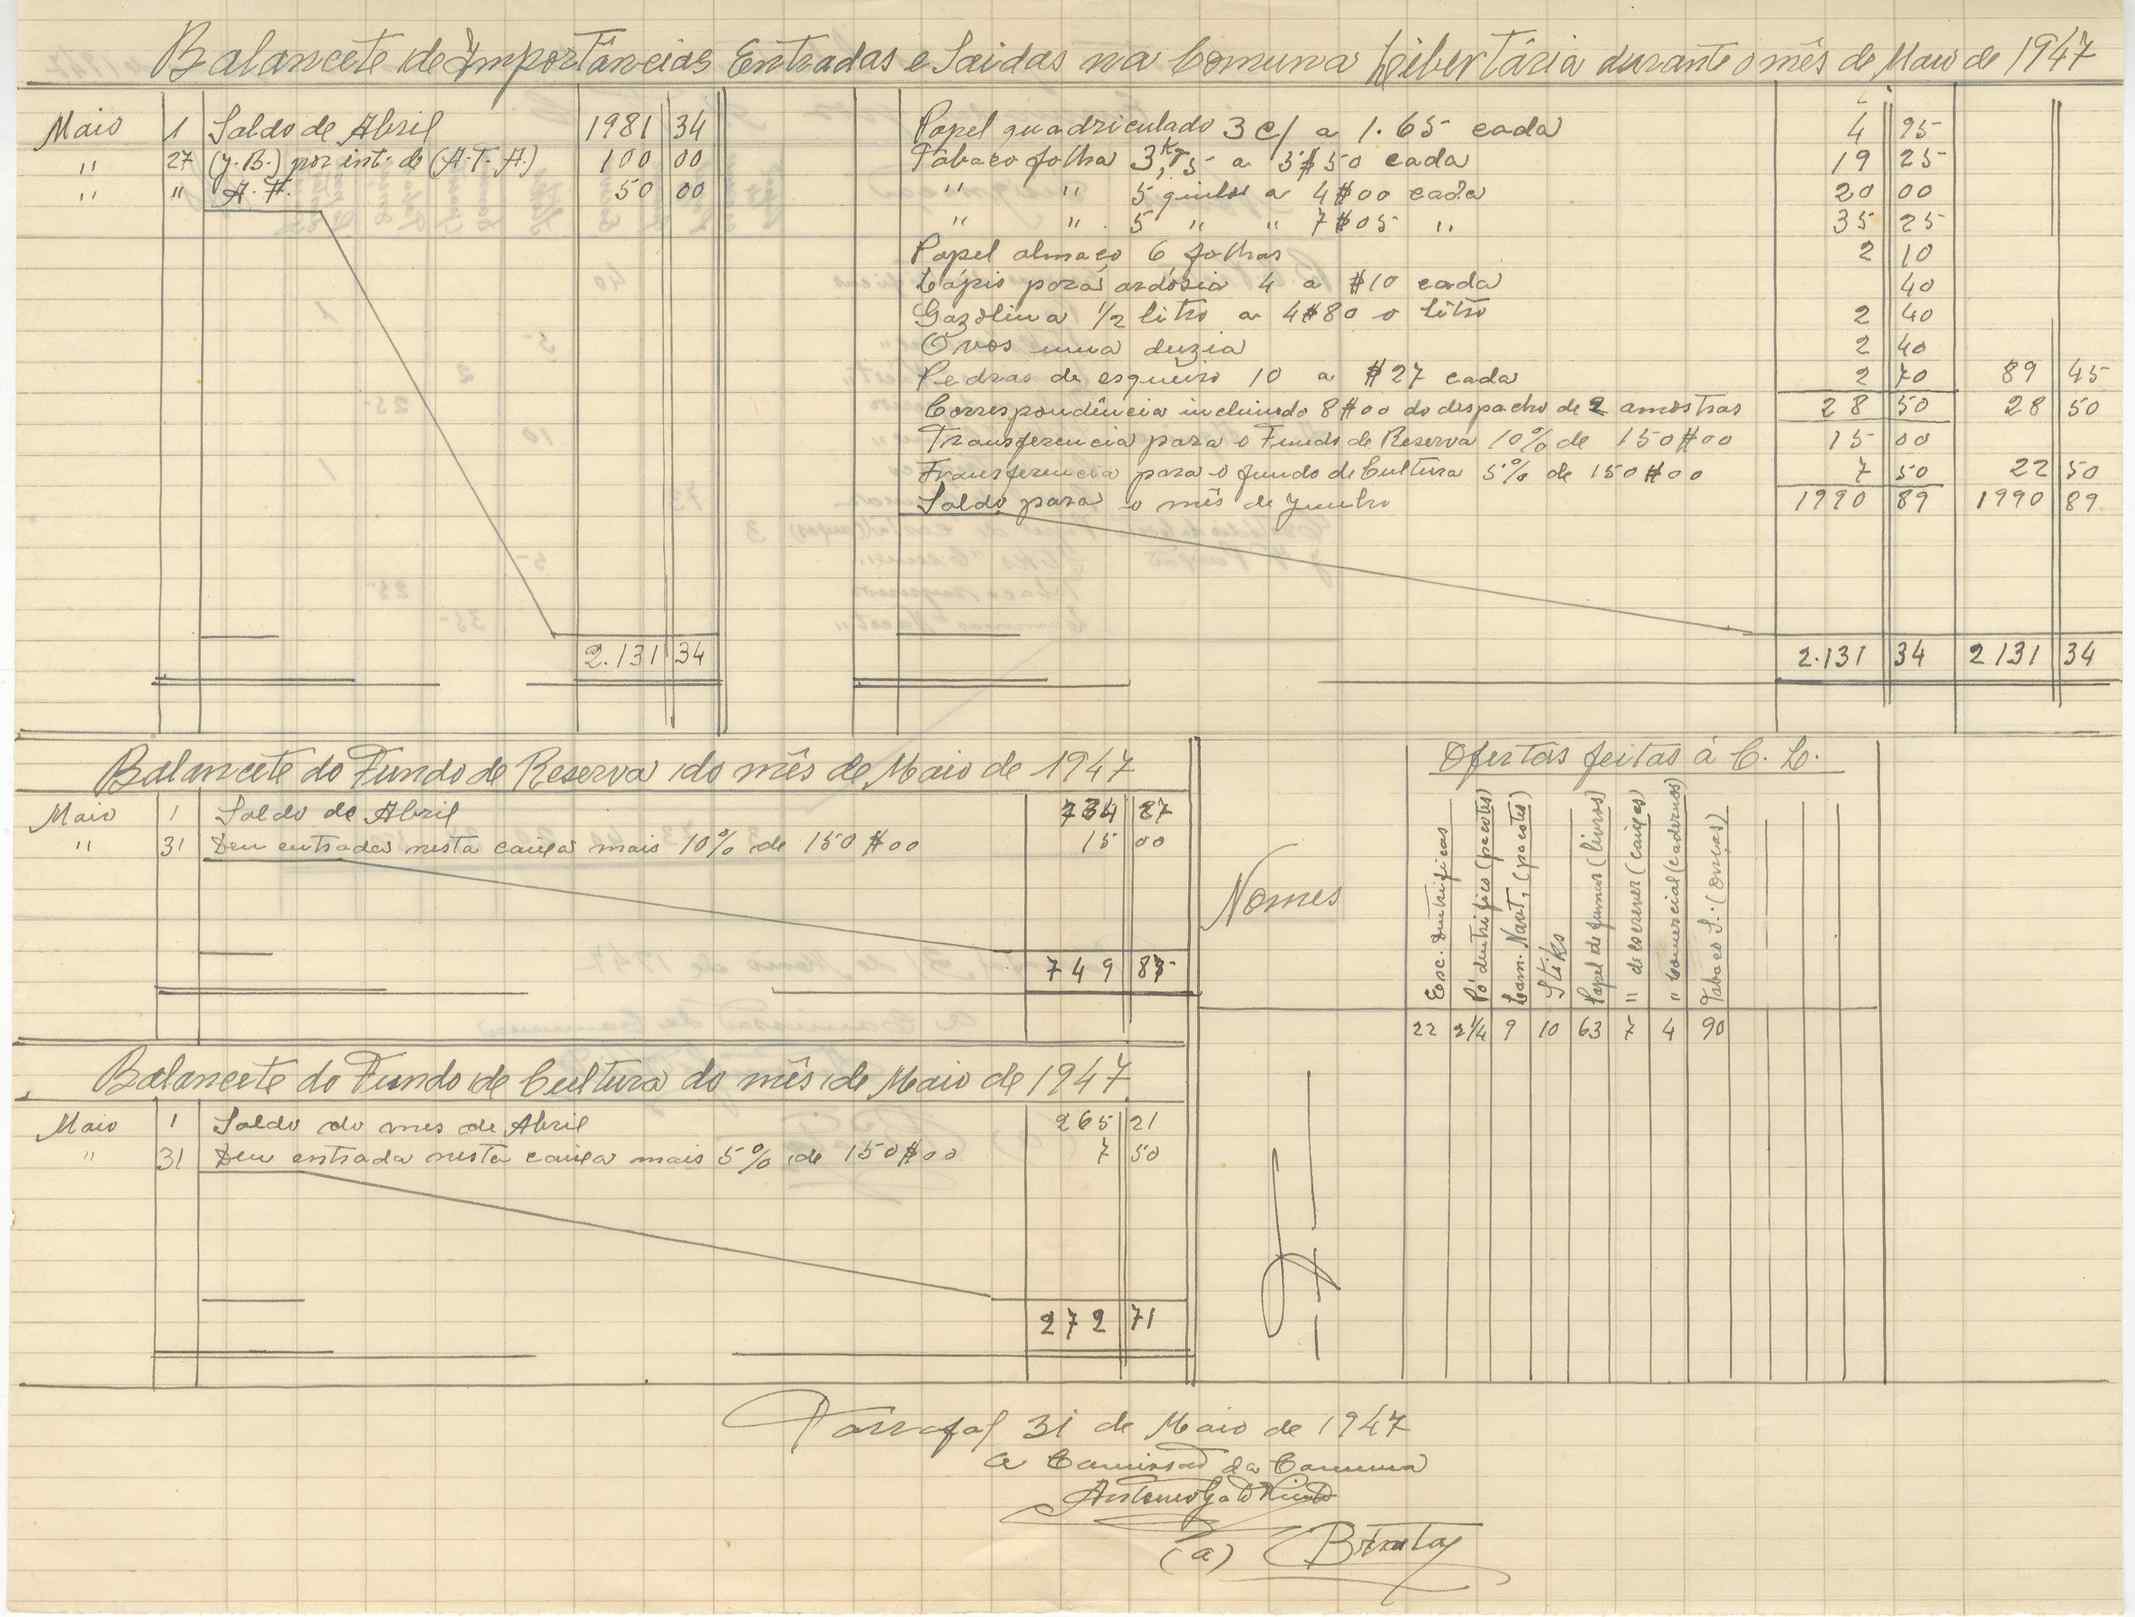 Balancete de Importâncias Entradas e Saidas na Comuna Libertária durante o mês de Maio de 1947
Maio 1 Saldo de Abril 1981 34
" 27 (J. B.) por int. de (A. T. A.) 100 00
" " A. F. 50 00
2.131 34
Papel quadriculado 3 c/ a 1.65 cada 4 95
Tabaco folha 3,5 a 5$50 cada 19 25
" " 5 quilos a 4$00 cada 20 00
" " 5 " " 7$05 " 35 25
Papel almaço 6 folhas 2 10
Lápis para ardósia 4 a $10 cada 40
Gazolina 1/2 litro a 4$80 o litro 2 40
Ovos uma duzia 2 40
Pedras de esqueiro 10 a $27 cada 2 70 89 45
Correspondência incluindo 8$00 do despacho de 2 amostras 28 50 28 50
Transferencia para o Fundo de Reserva 10% de 150$00 15 00
Transferencia para o fundo de Cultura 5% de 150$00 7 50 22 50
Saldo para o mês de Junho 1990 89 1990 89
2.131 34 2131 34
Balancete do Fundo de Reserva do mês de Maio de 1947
Maio 1 Saldo de Abril 734 87
" 31 Deu entrada nesta caixa mais 10% de 150$00 15 00
749 87
Balancete do Fundo de Cultura do mês de Maio de 1947
Maio 1 Saldo do mes de Abril 265 21
" 31 Deu entrada nesta caixa mais 5% de 150$00 7 50
272 71
Ofertas feitas á C. L.
Nomes
Esc. dentrificas
Pó dentrifico (pacotes)
Cam. Navt. (pacotes)
Papel de fumar (livros)
" de escrever (caixas)
" Comercial (cadernos)
Tabaco S.: (onças)
22 2 1/4 9 10 63 7 4 90
Tarrafal 31 de Maio de 1947
A Comissão da Comuna
Antonio Gato Pinto
(a)